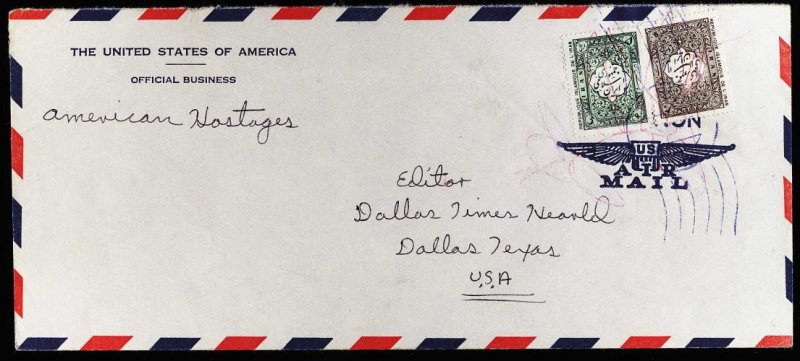 THE UNITED STATES OF AMERICA
OFFICIAL BUSINESS
American Hostages
IRAN
IRAN
US
AIR
MAIL
Editor
Dallas Times Hearld
Dallas Texas
U.S.A